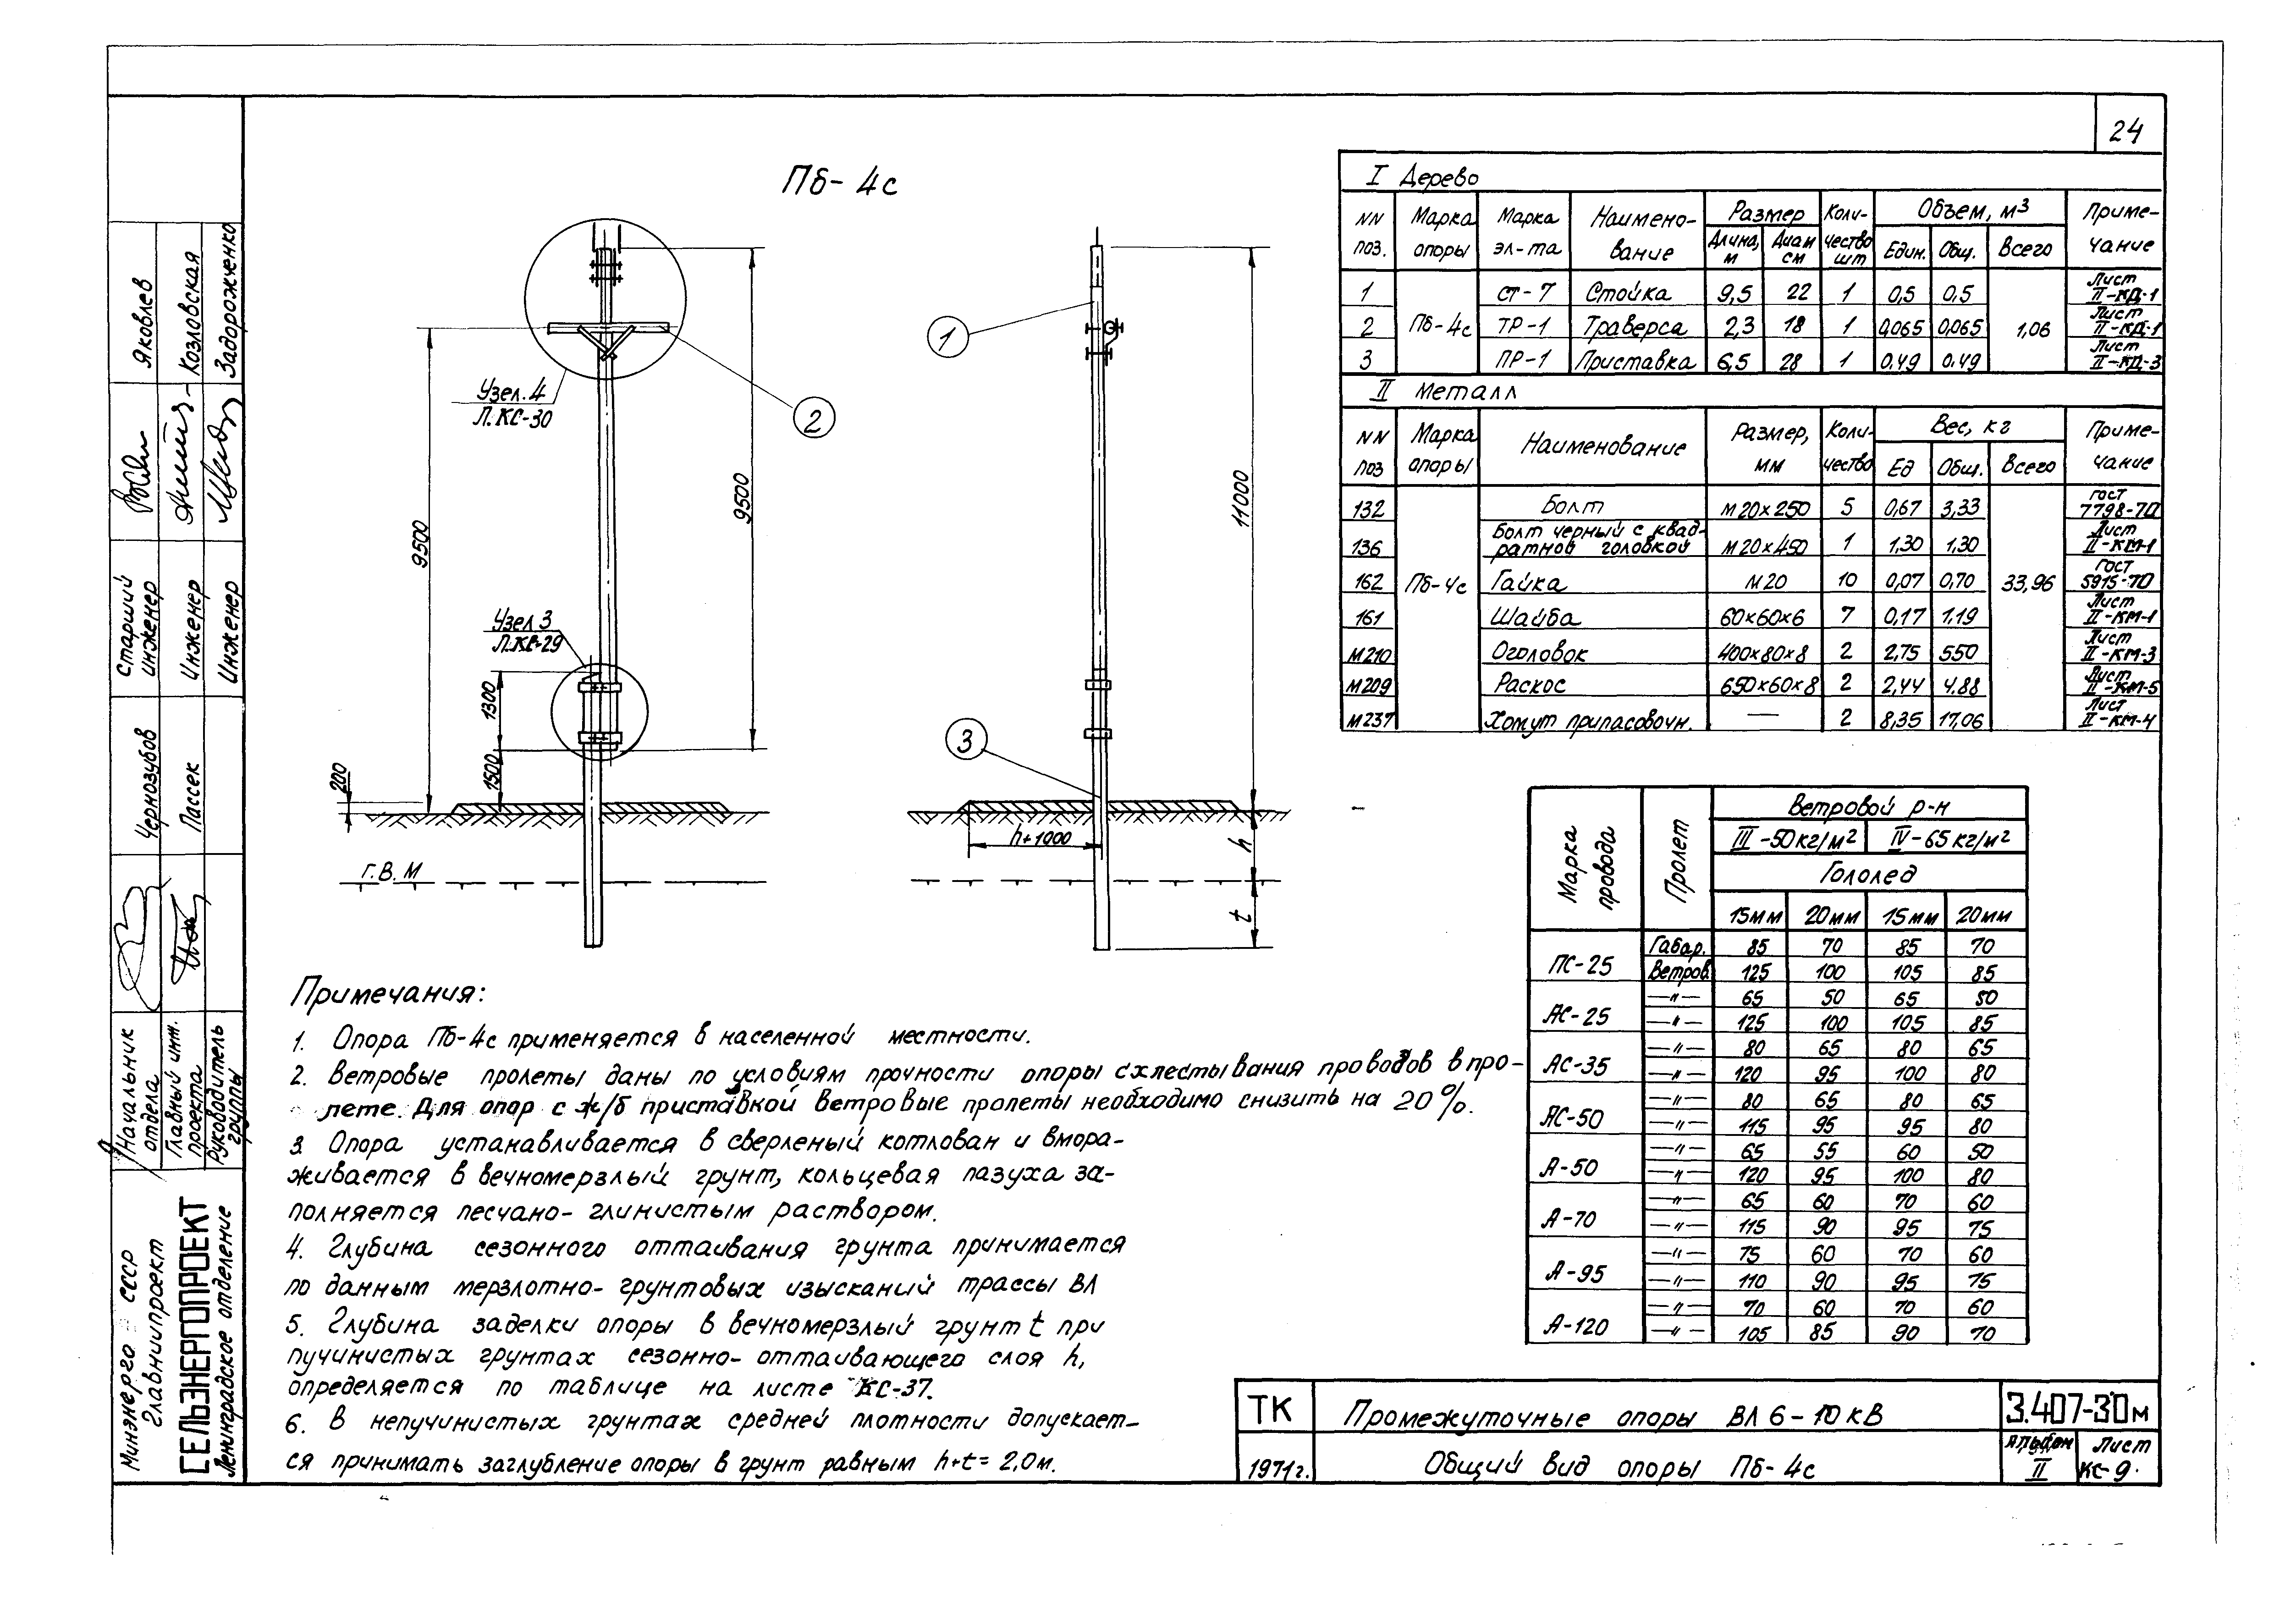 24
Пб-4с
Узел 4
Л. КС-30
Узел 3
Л. КС-29
1
2
3
9500
9500
11000
1300
1500
200
h+1000
h
t
Г.В.М
I Дерево
NN поз. Марка опоры Марка эл-та Наименование Размер Количество шт Объем, м3 Примечание
Длина, м Диам см Един. Общ. Всего
1 СТ-7 Стойка 9,5 22 1 0,5 0,5 Лист II-КД-1
2 Пб-4с ТР-1 Траверса 2,3 18 1 0,065 0,065 1,06 Лист II-КД-1
3 ПР-1 Приставка 6,5 28 1 0,49 0,49 Лист II-КД-3
II Металл
NN поз Марка опоры Наименование Размер, мм Количество Вес, кг Примечание
Ед Общ. Всего
132 Болт М20×250 5 0,67 3,33 ГОСТ 7798-70
136 Болт черный с квадратной головкой М20×450 1 1,30 1,30 Лист II-КМ-1
162 Пб-4с Гайка М20 10 0,07 0,70 33,96 ГОСТ 5915-70
161 Шайба 60×60×6 7 0,17 1,19 Лист II-КМ-1
М210 Оголовок 400×80×8 2 2,75 550 Лист II-КМ-3
М209 Раскос 650×60×8 2 2,44 4.88 Лист II-КМ-5
М237 Хомут припасовочн. — 2 8,35 17,06 Лист II-КМ-4
Марка провода Пролет Ветровой р-н
III-50кг/м2 IV-65кг/м2
Гололед
15мм 20мм 15мм 20мм
ПС-25 Габар. 85 70 85 70
Ветров. 125 100 105 85
АС-25 —"— 65 50 65 50
—"— 125 100 105 85
АС-35 —"— 80 65 80 65
—"— 120 95 100 80
АС-50 —"— 80 65 80 65
—"— 115 95 95 80
А-50 —"— 65 55 60 50
—"— 120 95 100 80
А-70 —"— 65 60 70 60
—"— 115 90 95 75
А-95 —"— 75 60 70 60
—"— 110 90 95 75
А-120 —"— 70 60 70 60
—"— 105 85 90 70
Примечания:
1. Опора Пб-4с применяется в населенной местности.
2. Ветровые пролеты даны по условиям прочности опоры схлестывания проводов в про-
лете. Для опор с ж/б приставкой ветровые пролеты необходимо снизить на 20%.
3. Опора устанавливается в сверленый котлован и вмора-
живается в вечномерзлый грунт, кольцевая пазуха за-
полняется песчано-глинистым раствором.
4. Глубина сезонного оттаивания грунта принимается
по данным мерзлотно-грунтовых изысканий трассы ВЛ
5. Глубина заделки опоры в вечномерзлый грунт t при
пучинистых грунтах сезонно-оттаивающего слоя h,
определяется по таблице на листе КС-37.
6. В непучинистых грунтах средней плотности допускает-
ся принимать заглубление опоры в грунт равным h+t=2,0м.
ТК
1971г.
Промежуточные опоры ВЛ 6-10 кВ
Общий вид опоры Пб-4с
3.407-30м
Альбом II
Лист КС-9.
Минэнерго СССР
Главниипроект
СЕЛЬЭНЕРГОПРОЕКТ
Ленинградское отделение
Начальник отдела
Главный инж. проекта
Руководитель группы
Чернозубов
Пассек
Старший инженер
Инженер
Инженер
Яковлев
Козловская
Задорожченко